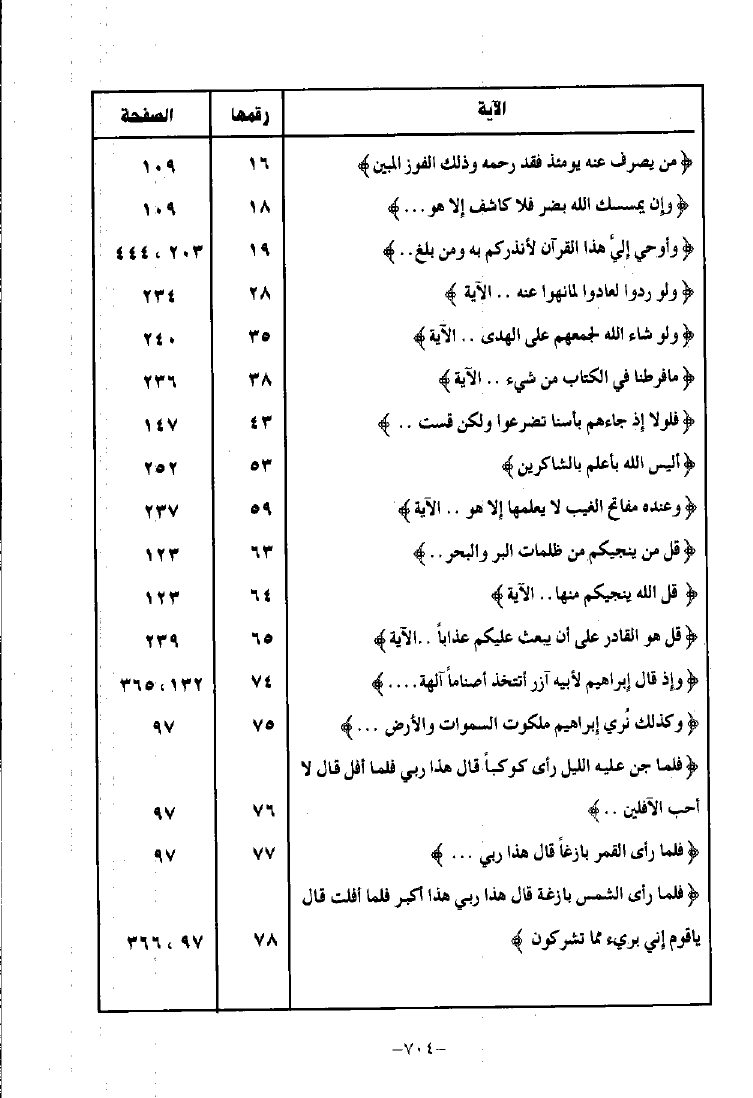 الآية رقمها الصفحة
﴿ من يصرف عنه يومئذ فقد رحمه وذلك الفوز المبين ﴾ ١٦ ١٠٩
﴿ وإن يمسسك الله بضر فلا كاشف إلا هو ... ﴾ ١٨ ١٠٩
﴿ وأوحي إليَّ هذا القرآن لأنذركم به ومن بلغ .. ﴾ ١٩ ٢٠٣ ، ٤٤٤
﴿ ولو ردوا لعادوا لمانهوا عنه .. الآية ﴾ ٢٨ ٢٣٤
﴿ ولو شاء الله لجمعهم على الهدى .. الآية ﴾ ٣٥ ٢٤٠
﴿ مافرطنا في الكتاب من شيء .. الآية ﴾ ٣٨ ٢٣٦
﴿ فلولا إذ جاءهم بأسنا تضرعوا ولكن قست .. ﴾ ٤٣ ١٤٧
﴿ أليس الله بأعلم بالشاكرين ﴾ ٥٣ ٢٥٢
﴿ وعنده مفاتح الغيب لا يعلمها إلا هو .. الآية ﴾ ٥٩ ٢٣٧
﴿ قل من ينجيكم من ظلمات البر والبحر .. ﴾ ٦٣ ١٢٣
﴿ قل الله ينجيكم منها .. الآية ﴾ ٦٤ ١٢٣
﴿ قل هو القادر على أن يبعث عليكم عذاباً .. الآية ﴾ ٦٥ ٢٣٩
﴿ وإذ قال إبراهيم لأبيه آزر أتتخذ أصناماً آلهة .... ﴾ ٧٤ ١٣٢ ، ٣٦٥
﴿ وكذلك نُري إبراهيم ملكوت السموات والأرض ... ﴾ ٧٥ ٩٧
﴿ فلما جن عليه الليل رأى كوكباً قال هذا ربي فلما أفل قال لا
أحب الآفلين .. ﴾ ٧٦ ٩٧
﴿ فلما رأى القمر بازغاً قال هذا ربي ... ﴾ ٧٧ ٩٧
﴿ فلما رأى الشمس بازغة قال هذا ربي هذا أكبر فلما أفلت قال
ياقوم إني بريء مما تشركون ﴾ ٧٨ ٩٧ ، ٣٦٦
–٧٠٤–